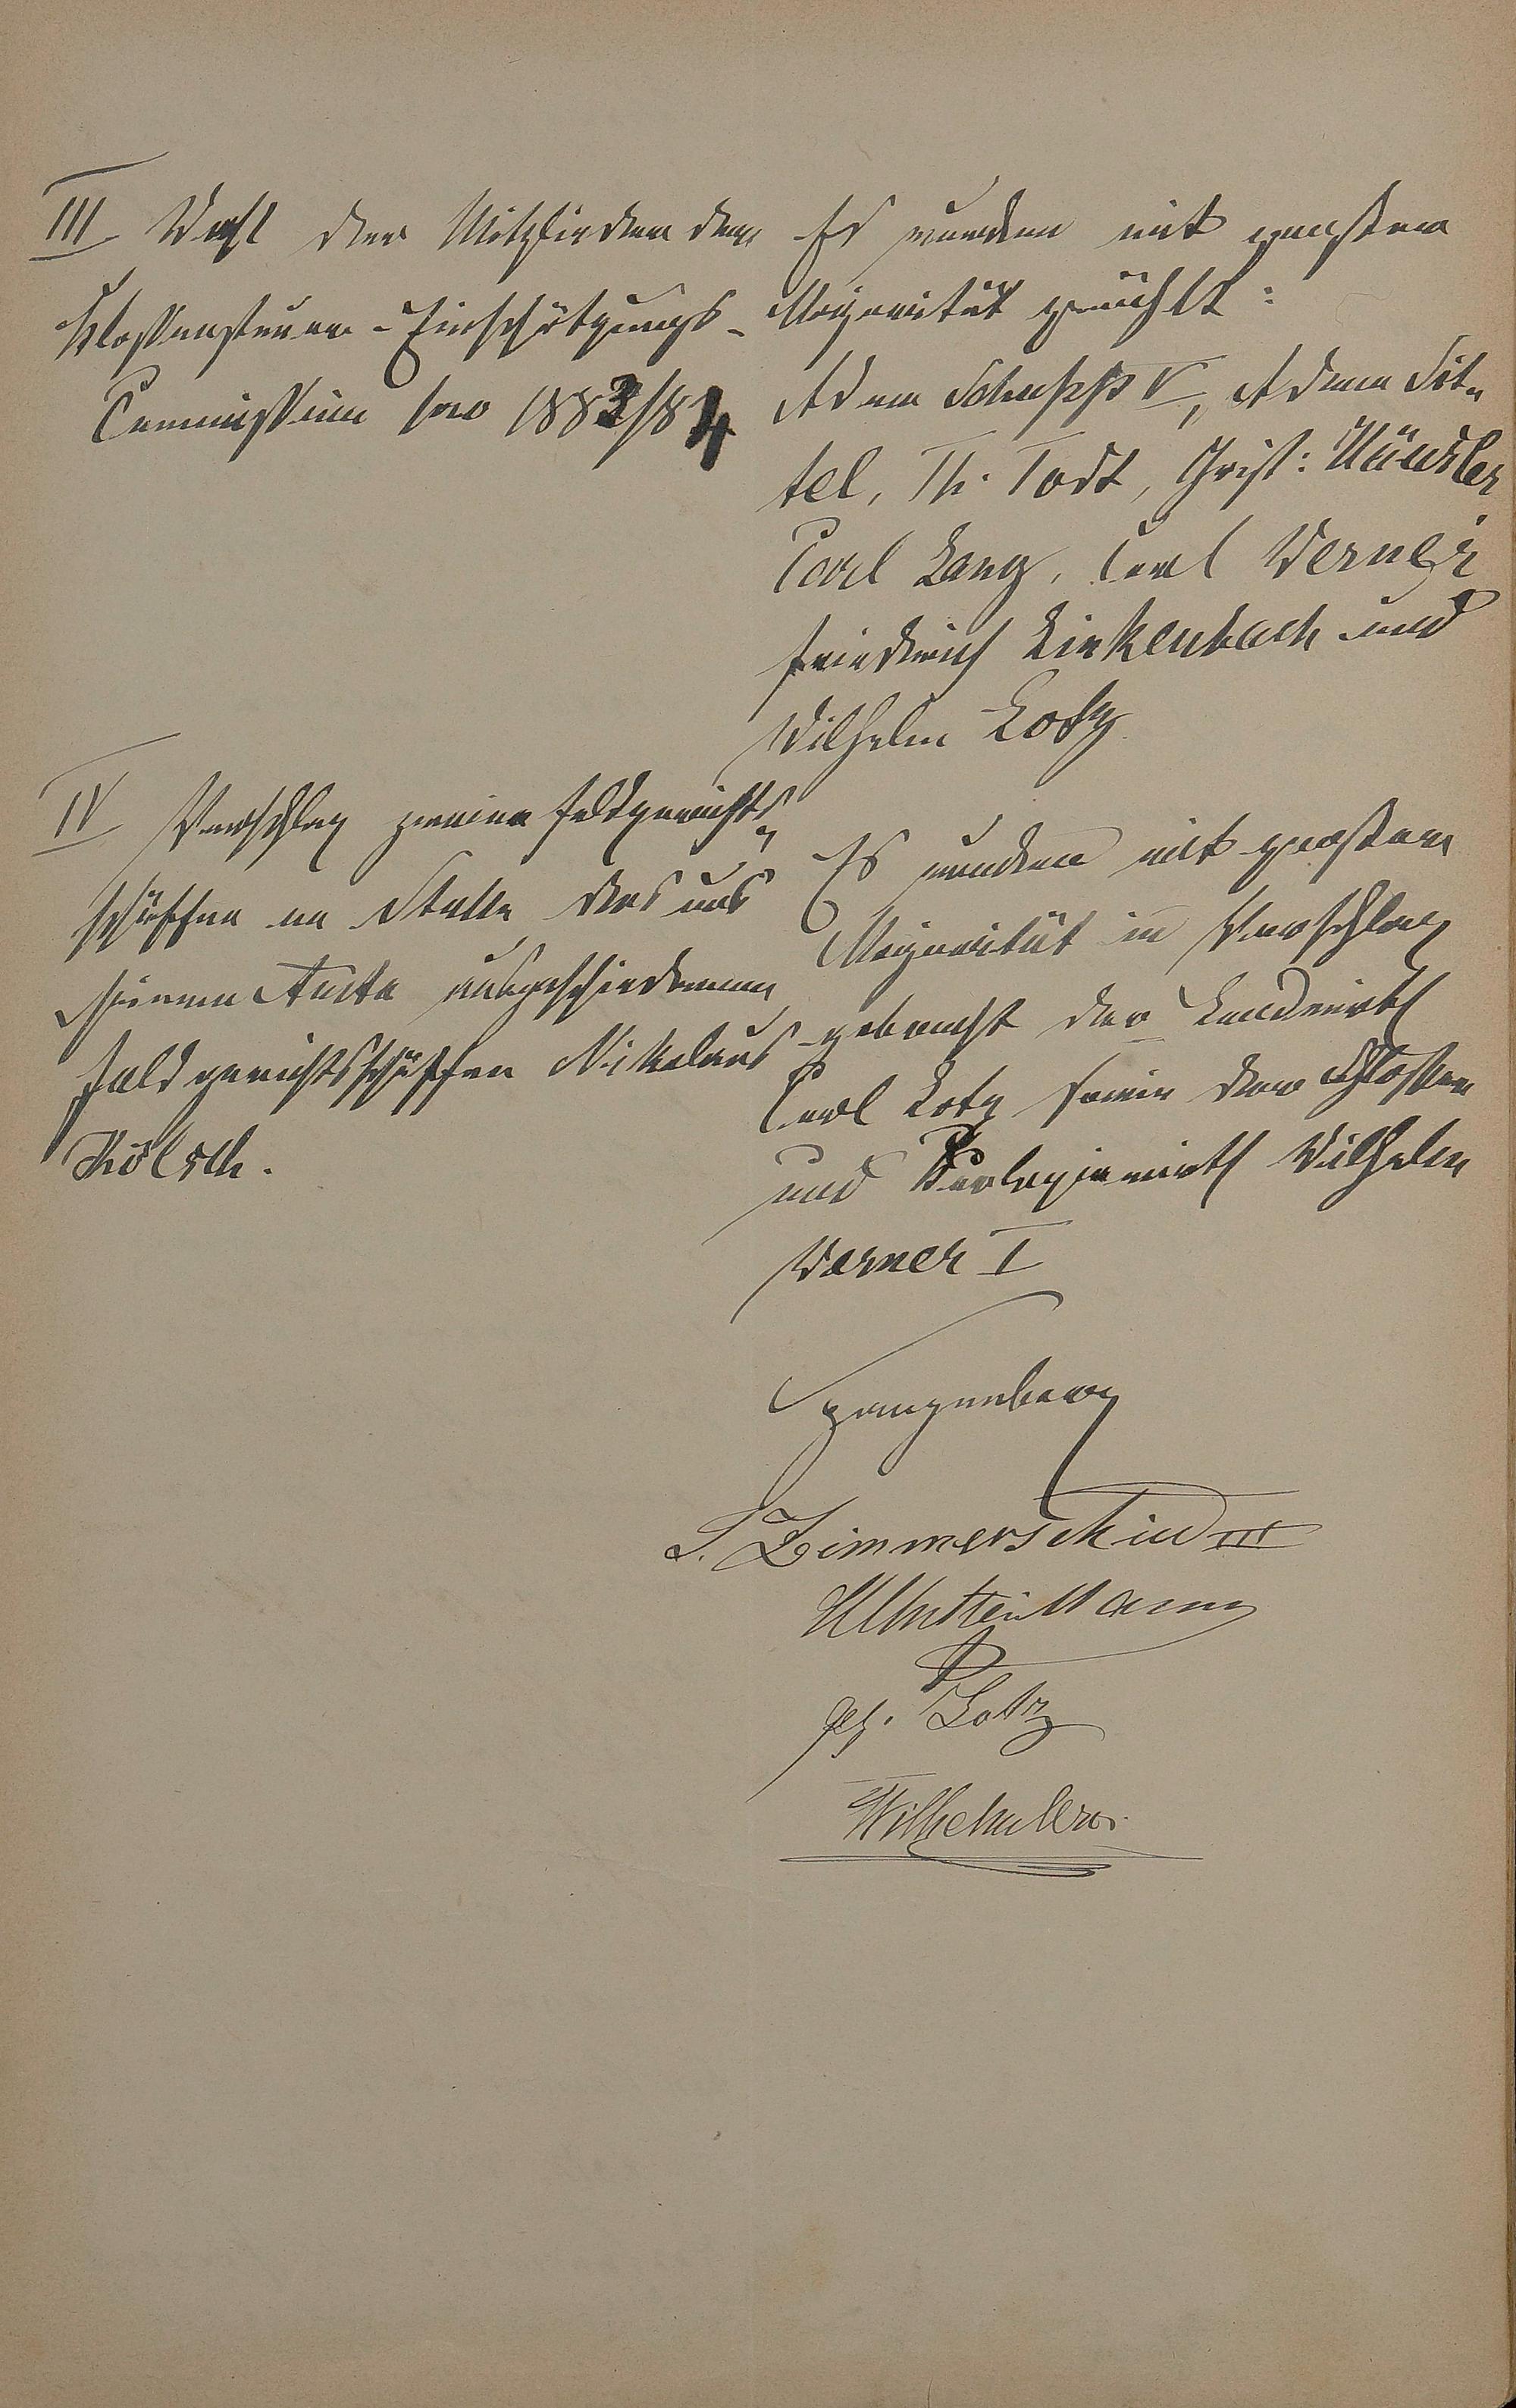 III Wahl der Mitglieder der
Klassensteuer-Einschätzungs-
Commission pro 1883/84
Es wurden mit großer
Majorität gewählt:
Adam Schupp V, Adam Sit-
tel, Th. Todt, Christ:
Carl Lang, Carl Werner
Friedrich Linkenbach und
Wilhelm Lotz
IV Vorschlag zweier Feldgerichts-
schöffen an Stelle des aus
seinem Amte ausgeschiedenen
Feldgerichtsschöffen Nikolaus
Kölsch.
Es wurden mit großer
Majorität in Vorschlag
gebracht der Landwirth
Carl Lotz sowie der Schlosser
und Wirth Wilhelm
Werner I
Spangenberg
Zimmerschied III
Lotz